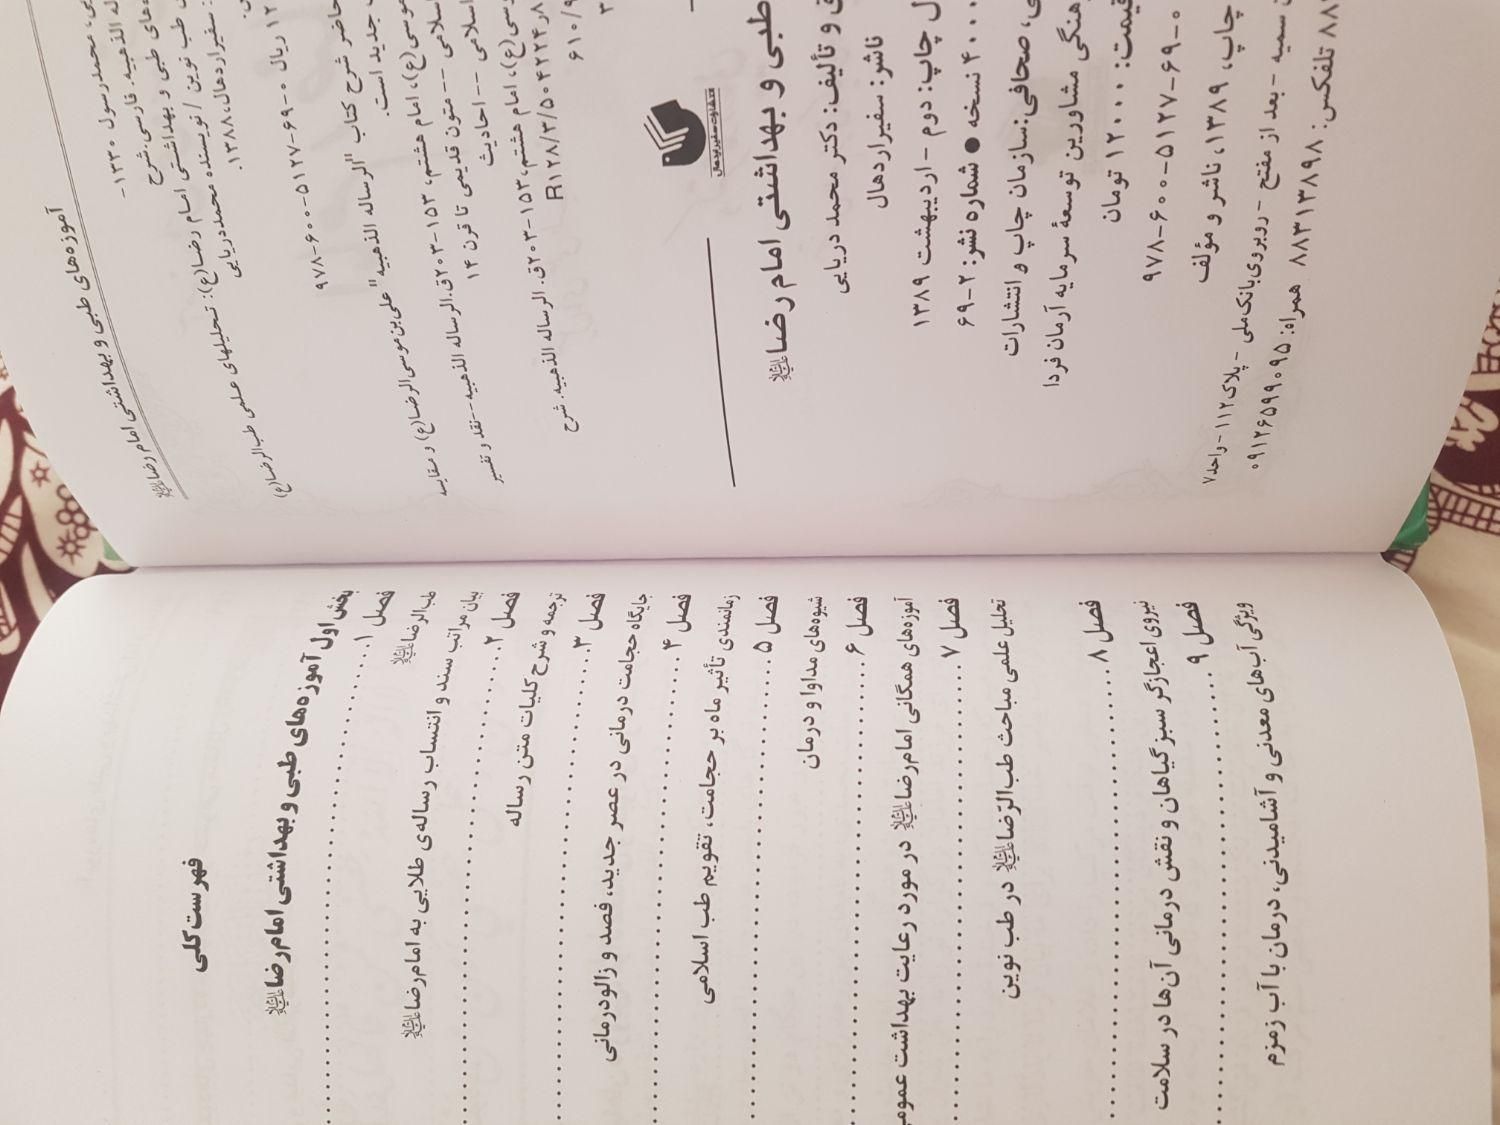 آموزه‌های طبی و بهداشتی امام رضا
محمدرسول ۱۳۳۰-
الذهبیه. فارسی. شرح
های طبی و بهداشتی امام رضا(ع): تحلیلهای علمی طب‌الرضا(ع)
طب نوین / نویسنده محمد دریایی
: سفیراردهال، ۱۳۸۸.
ریال ۰-۶۹-۵۱۲۷-۶۰۰-۹۷۸
حاضر شرح کتاب "الرساله الذهبیه" علی‌بن موسی‌الرضا(ع) و مقایسه
جدید است.
موسی(ع)، امام هشتم، ۱۵۳-۲۰۳ق. الرساله الذهبیه--نقد و تفسیر
اسلامی -- متون قدیمی تا قرن ۱۴
اسلامی -- احادیث
موسی(ع)، امام هشتم، ۱۵۳-۲۰۳ق. الرساله الذهبیه. شرح
R۱۲۸/۳/۵۰۴۲۲۴
۶۱۰/۹
انتشارات سفیر اردهال
طبی و بهداشتی امام رضا
و تألیف: دکتر محمد دریایی
ناشر: سفیراردهال
چاپ: دوم - اردیبهشت ۱۳۸۹
۴۰۰۰ نسخه ● شماره نشر: ۲-۶۹
صحافی: سازمان چاپ و انتشارات
فرهنگی مشاورین توسعهٔ سرمایه آرمان فردا
قیمت: ۱۲۰۰۰ تومان
۹۷۸-۶۰۰-۵۱۲۷-۶۹-۰
چاپ، ۱۳۸۹، ناشر و مؤلف
سمیه - بعد از مفتح - روبروی‌بانک‌ملی - پلاک۱۱۲ - واحد۷
تلفکس: ۸۸۳۱۳۸۹۸ همراه: ۰۹۱۲۶۵۹۹۰۹۵
فهرست کلی
بخش اول آموزه‌های طبی و بهداشتی امام رضا
فصل ۱
طب‌الرضا
بیان مراتب سند و انتساب رساله‌ی طلایی به امام‌رضا
فصل ۲
ترجمه و شرح کلیات متن رساله
فصل ۳
جایگاه حجامت درمانی در عصر جدید، فصد و زالودرمانی
فصل ۴
زمانمندی تأثیر ماه بر حجامت، تقویم طب اسلامی
فصل ۵
شیوه‌های مداوا و درمان
فصل ۶
آموزه‌های همگانی امام‌رضا در مورد رعایت بهداشت
فصل ۷
تحلیل علمی مباحث طب‌الرّضا در طب نوین
فصل ۸
نیروی اعجازگر سبز گیاهان و نقش درمانی آن‌ها در سلامت
فصل ۹
ویژگی آب‌های معدنی و آشامیدنی، درمان با آب زمزم